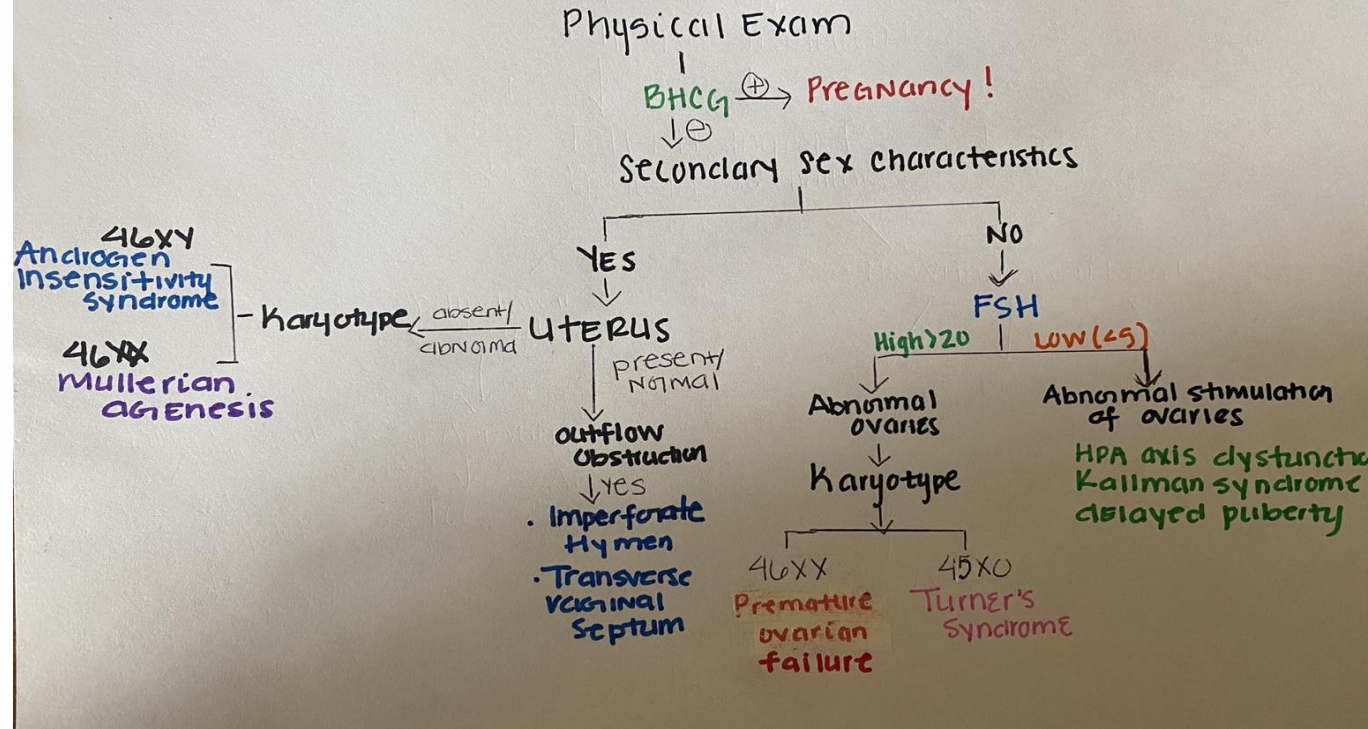 Physical Exam
BHCG ⊕ → Pregnancy!
↓ ⊖
Secondary sex characteristics
YES
NO
46XY
Androgen
Insensitivity
syndrome
46XX
Mullerian
agenesis
Karyotype
absent/
abnormal
UTERUS
present/
Normal
outflow
Obstruction
↓ yes
• Imperforate
Hymen
• Transverse
vaginal
Septum
FSH
High>20
LOW (<5)
Abnormal
ovaries
Karyotype
46XX
Premature
ovarian
failure
45XO
Turner's
Syndrome
Abnormal stimulation
of ovaries
HPA axis dysfunctio
Kallman syndrome
delayed puberty